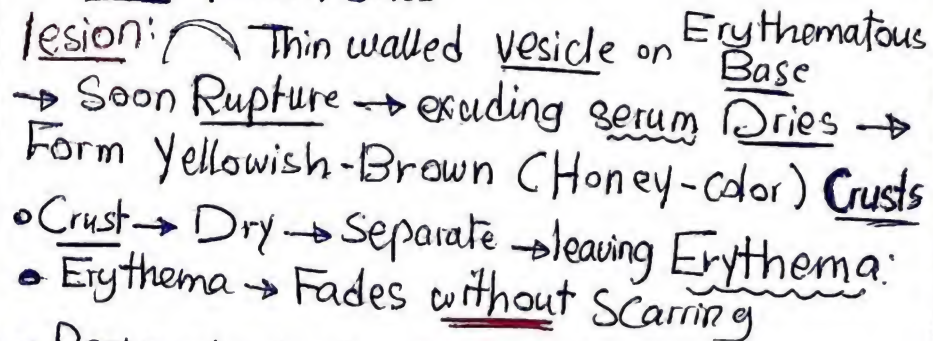 lesion: Thin walled vesicle on Erythematous Base
→ Soon Rupture → exuding serum Dries →
Form Yellowish-Brown (Honey-color) Crusts
• Crust → Dry → Separate → leaving Erythema:
• Erythema → Fades without Scarring